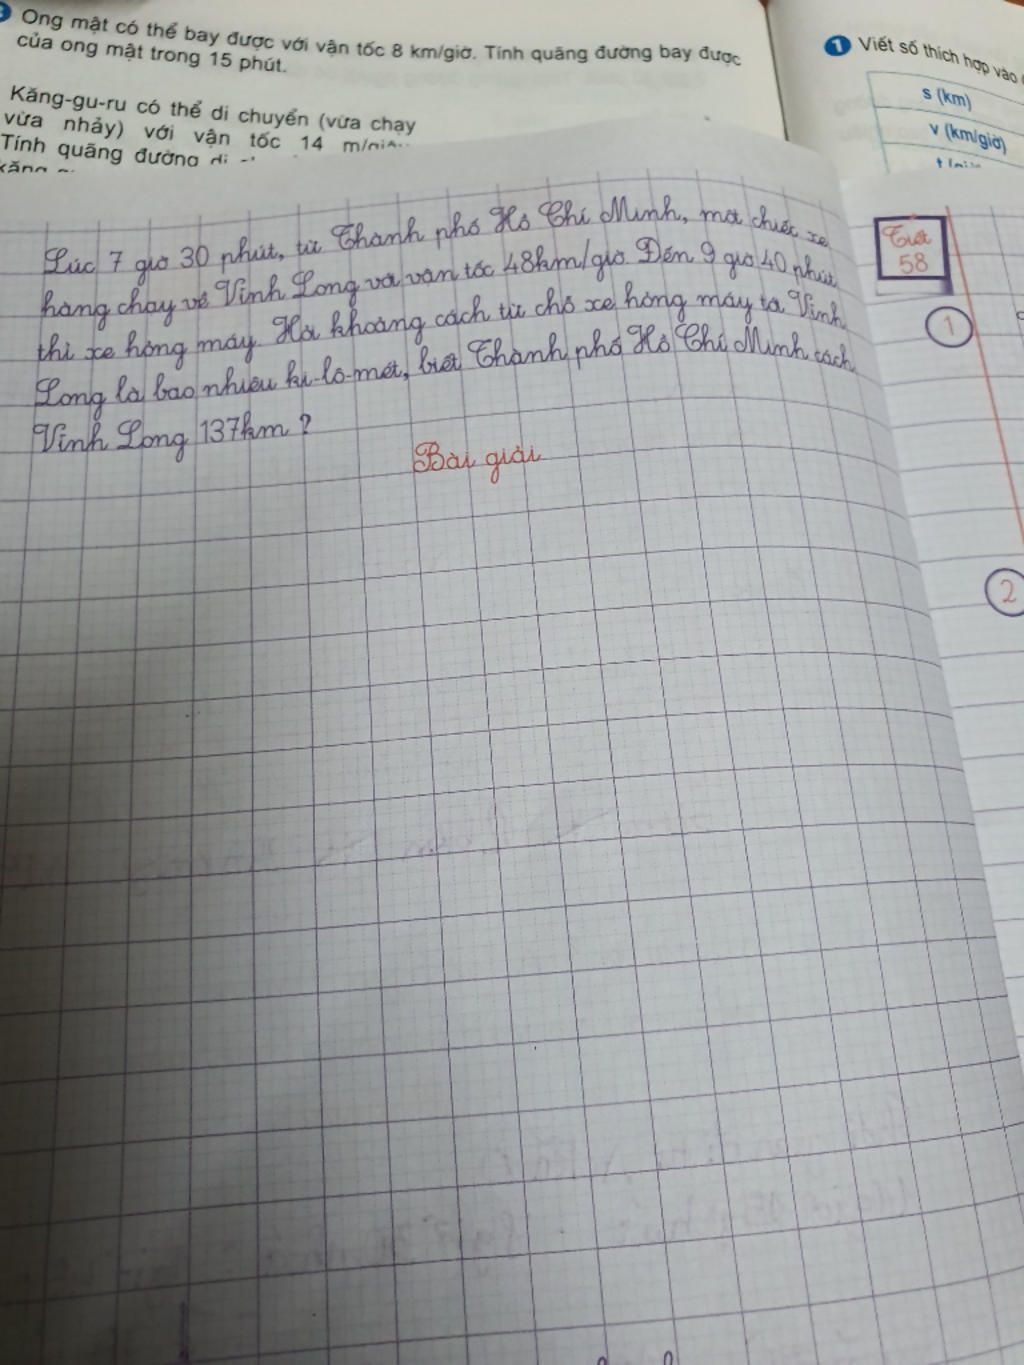 Ong mật có thể bay được với vận tốc 8 km/giờ. Tính quãng đường bay được
của ong mật trong 15 phút.
Kăng-gu-ru có thể di chuyển (vừa chạy
vừa nhảy) với vận tốc 14
Tính quãng đường di
1 Viết số thích hợp vào
s (km)
v (km/giờ)
Lúc 7 giờ 30 phút, từ Thành phố Hồ Chí Minh, một chiếc xe
hàng chạy về Vĩnh Long với vận tốc 48km/giờ. Đến 9 giờ 40 phút
thì xe hỏng máy. Hỏi khoảng cách từ chỗ xe hỏng máy tới Vĩnh
Long là bao nhiêu ki-lô-mét, biết Thành phố Hồ Chí Minh cách
Vĩnh Long 137km?
Bài giải
Tiết
58
1
2